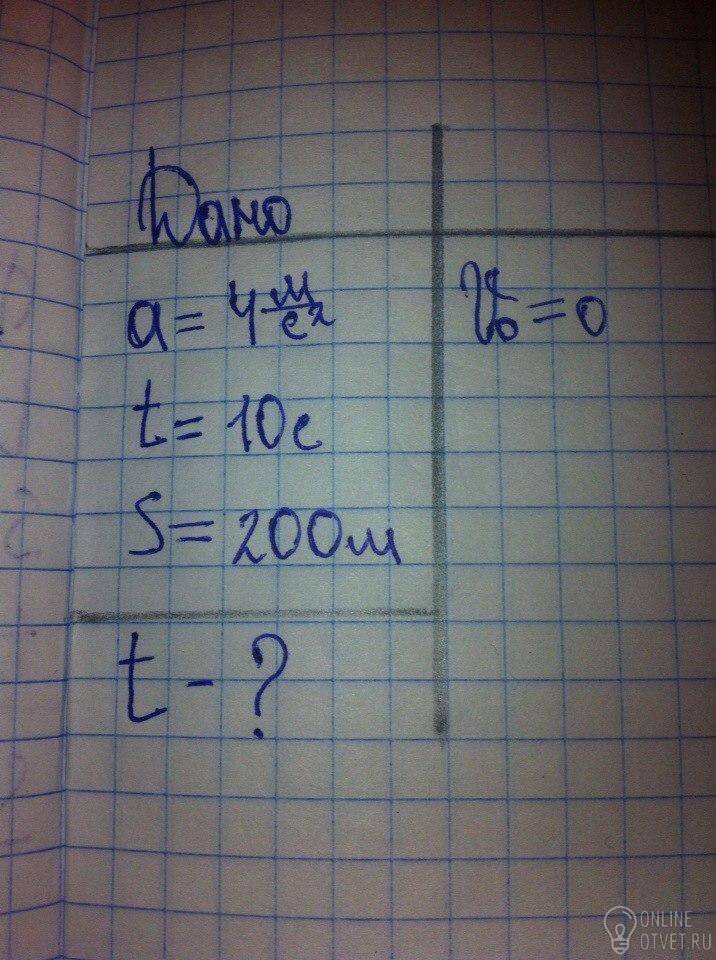 Дано
a = 4 м/с²
V₀ = 0
t = 10 с
S = 200 м
t - ?
ONLINE
OTVET.RU